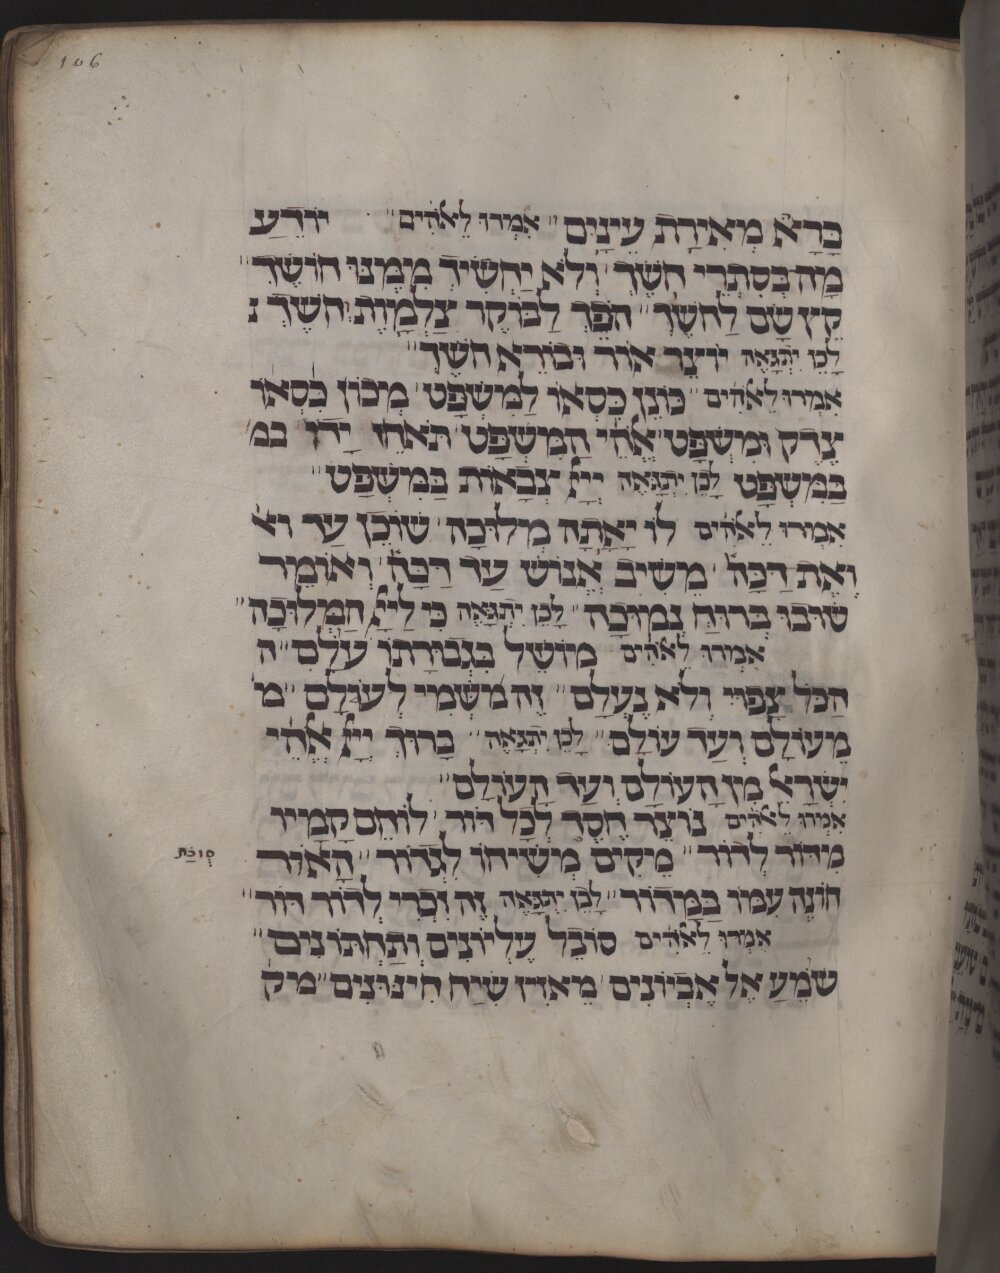 106
בָּרָא מִאִירַת עֵינָיִם" אִמְרוּ לֵאלֹהִים" יוֹדֵעַ
מָה בְּסִתְרֵי חשֶׁךְ' וְלֹא יַחְשִׁיךְ מִמֶּנּוּ חוֹשֶׁךְ"
קֵץ שָׂם לַחשֶׁךְ" הֹפֵךְ לַבּוֹקֶר צַלְמָוֶת וחשֶׁךְ נ
לָכֵן יִתְגָּאֶה יוֹצֵר אוֹר וּבוֹרֵא חשֶׁךְ"
אִמְרוּ לֵאלֹהִים כּוֹנֵן כִּסְאוֹ לַמִשְׁפָּט' מְכוֹן כִּסְאוֹ
צֶדֶק וּמִשְׁפָּט' אֱלֹהֵי הַמִשְׁפָּט' תֹּאחֵז יָדוֹ במ
בַּמִשְׁפָּט לָכֵן יִתְגָּאֶה יְיָ צְבָאוֹת בַּמִשְׁפָּט"
אִמְרוּ לֵאלֹהִים לוֹ יָאֲתָה מְלוּכָה' שׁוֹכֵן עַד וא
וְאֶת דַּכָּה' מֵשִׁיב אֱנוֹשׁ עַד דַּכָּה' וְאוֹמֵר
שׁוּבוּ בְּרוּחַ נְמוּכָה" לָכֵן יִתְגָּאֶה כִּי לַיְיָ הַמְּלוּכָה"
אִמְרוּ לֵאלֹהִים מוֹשֵׁל בִּגְבוּרָתוֹ עֹלָם" ה
הַכֹּל צָפוּי וְלֹא נֶעְלָם" זֶה שְׁמִי לְעוֹלָם" מ
מֵעוֹלָם וְעַד עוֹלָם" לָכֵן יִתְגָּאֶה" בָּרוּךְ יְיָ אֱלֹהֵי
יִשְׂרָאֵל מִן הָעוֹלָם וְעַד הָעוֹלָם"
אִמְרוּ לֵאלֹהִים נוֹצֵר חֶסֶד לְכָל דּוֹר' לוֹחֵם קָמָיו
מִדּוֹר לְדוֹר" מֵקִים מְשִׁיחוֹ לִגְדּוֹר" הָאוֹר
סוּכַּת
חוֹנֶה עִמּוֹ בַּמָּדוֹר" לָכֵן יִתְגָּאֶה זֶה זִכְרִי לְדוֹר דּוֹר"
אִמְרוּ לֵאלֹהִים סוֹבֵל עֶלְיוֹנִים וְתַחְתּוֹנִים"
שֹׁמֵעַ אֶל אֶבְיוֹנִים' מַאֲזִין שִׂיחַ חִינּוּנִים" מק